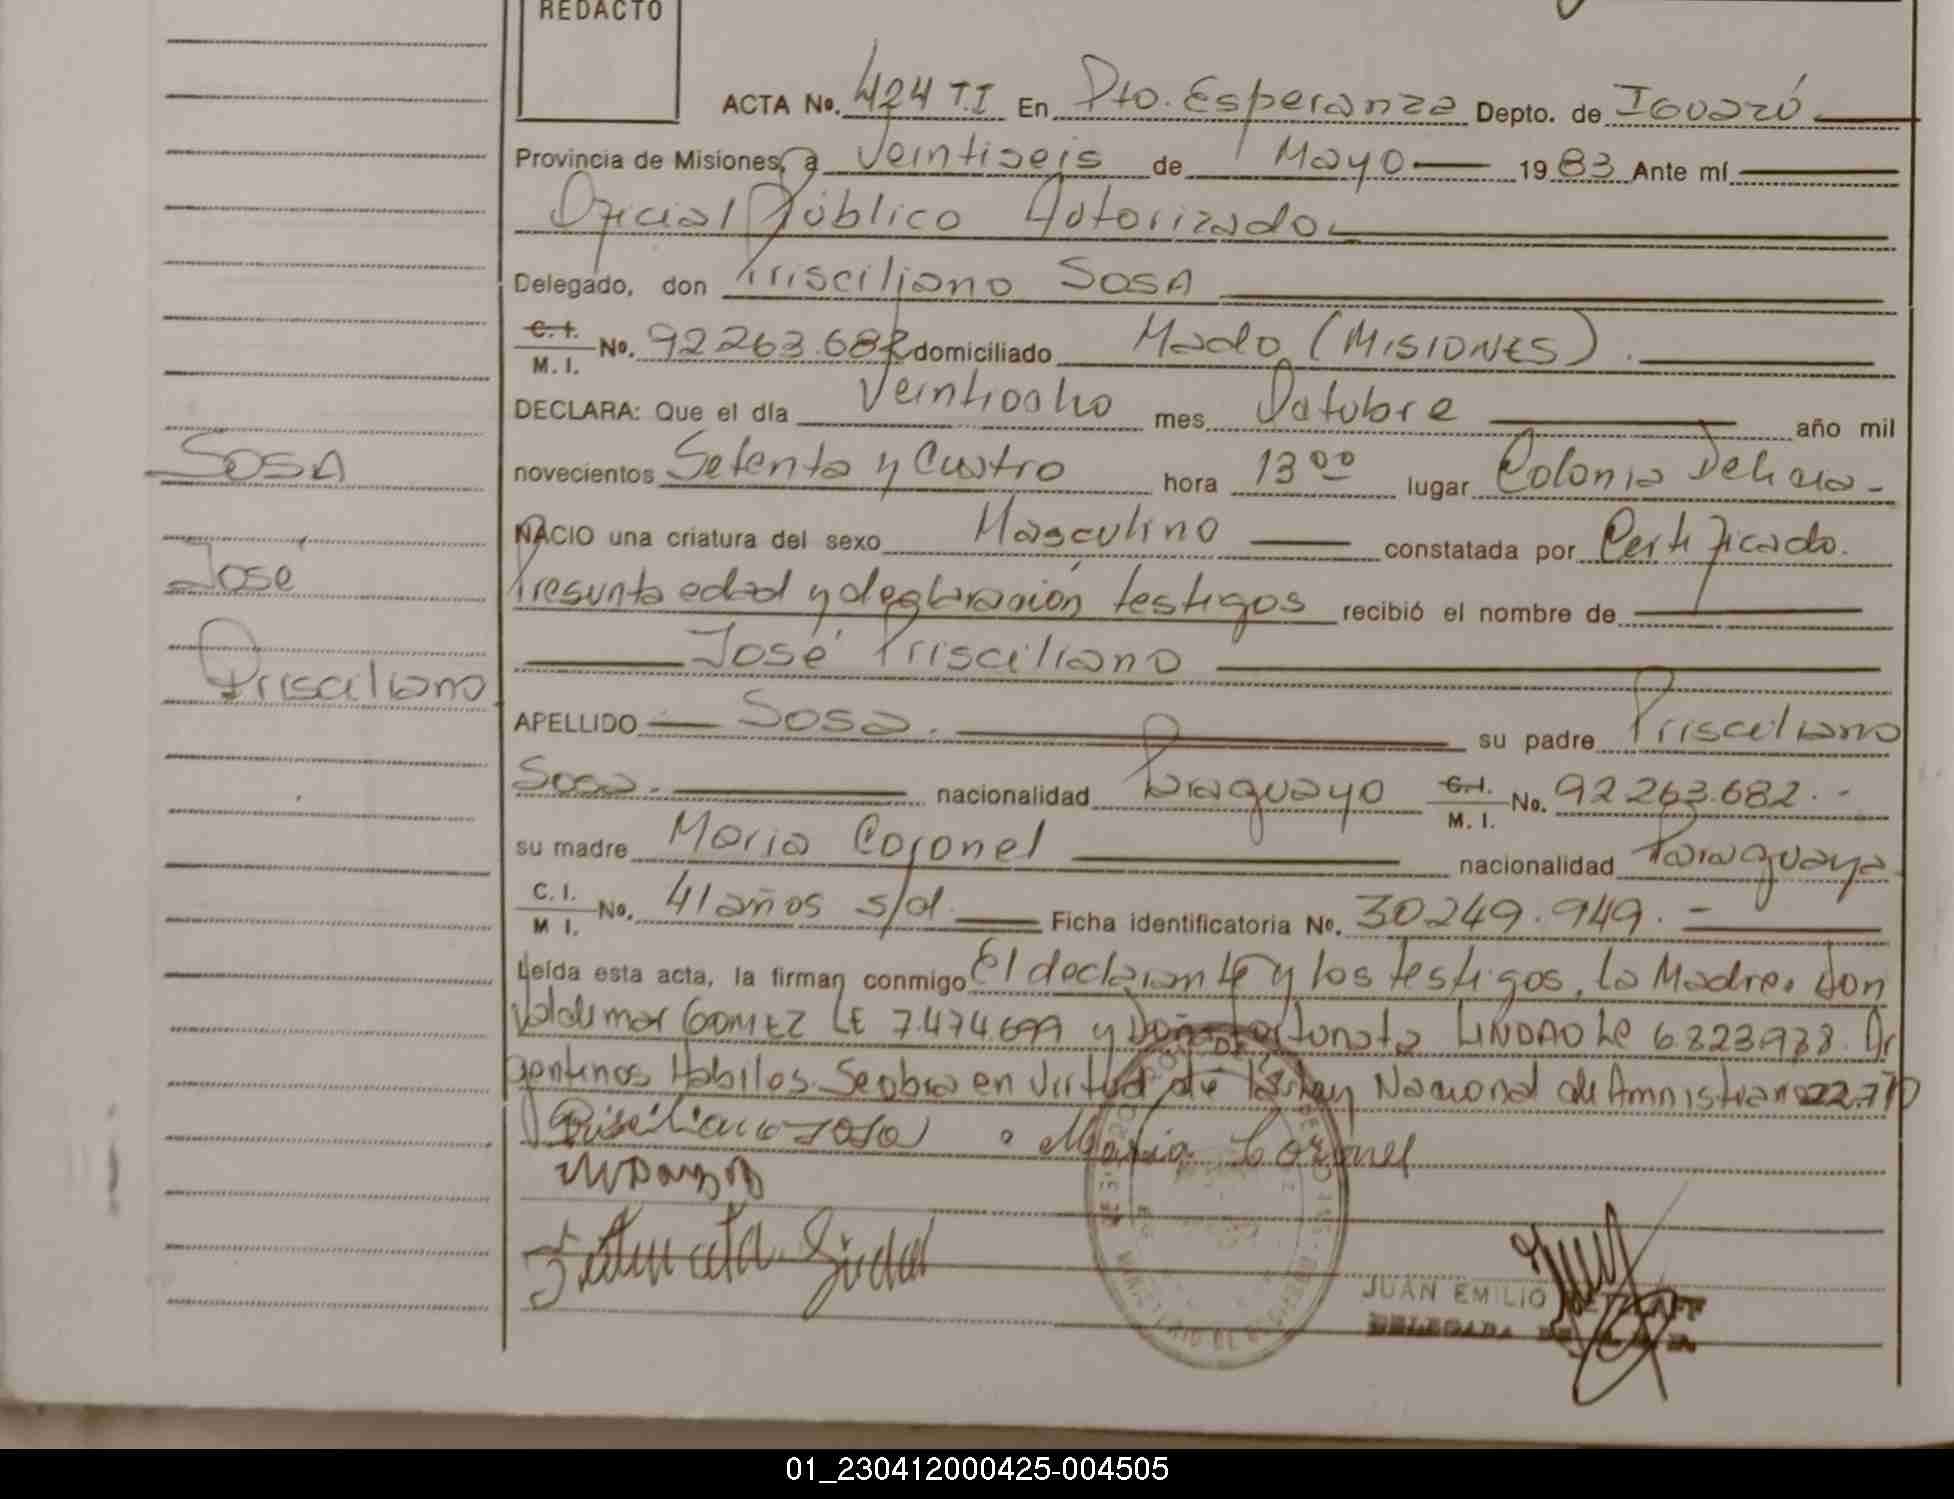 REDACTO
ACTA No. 424 TI En Pto. Esperanza Depto. de Iguazú
Provincia de Misiones, a Veintiseis de Mayo 1983 Ante mí
Oficial Público Autorizado
Delegado, don Prisciliano SosA
C. I. M. I. No. 92263.682 domiciliado Mado (MISIONES).
DECLARA: Que el día Veintiocho mes Octubre año mil
SOSA
novecientos Setenta y Cuatro hora 13 00 lugar Colonia Delicia-
NACIO una criatura del sexo Masculino constatada por Certificado.
José
Presunta edad y declaración testigos recibió el nombre de
José Prisciliano
Prisciliano
APELLIDO Sosa. su padre Prisciliano
Sosa. nacionalidad Paraguayo C.I. M. I. No. 92263.682.-
su madre Maria Coronel nacionalidad Paraguaya
C. I. M I. No. 41 años s/d. Ficha identificatoria No. 30249.949.-
Leída esta acta, la firman conmigo El declarante y los testigos, la Madre. Don
Valdemar GOMEZ LE 7.474.699 y Doña Fortunata LE 6.823.938. Ar
gentinos Habiles. Se obra en virtud de la Ley Nacional de Amnistia no 22.770
Prisciliano sosa Maria Coronel
JUAN EMILIO
DELEGADA DE
01_230412000425-004505